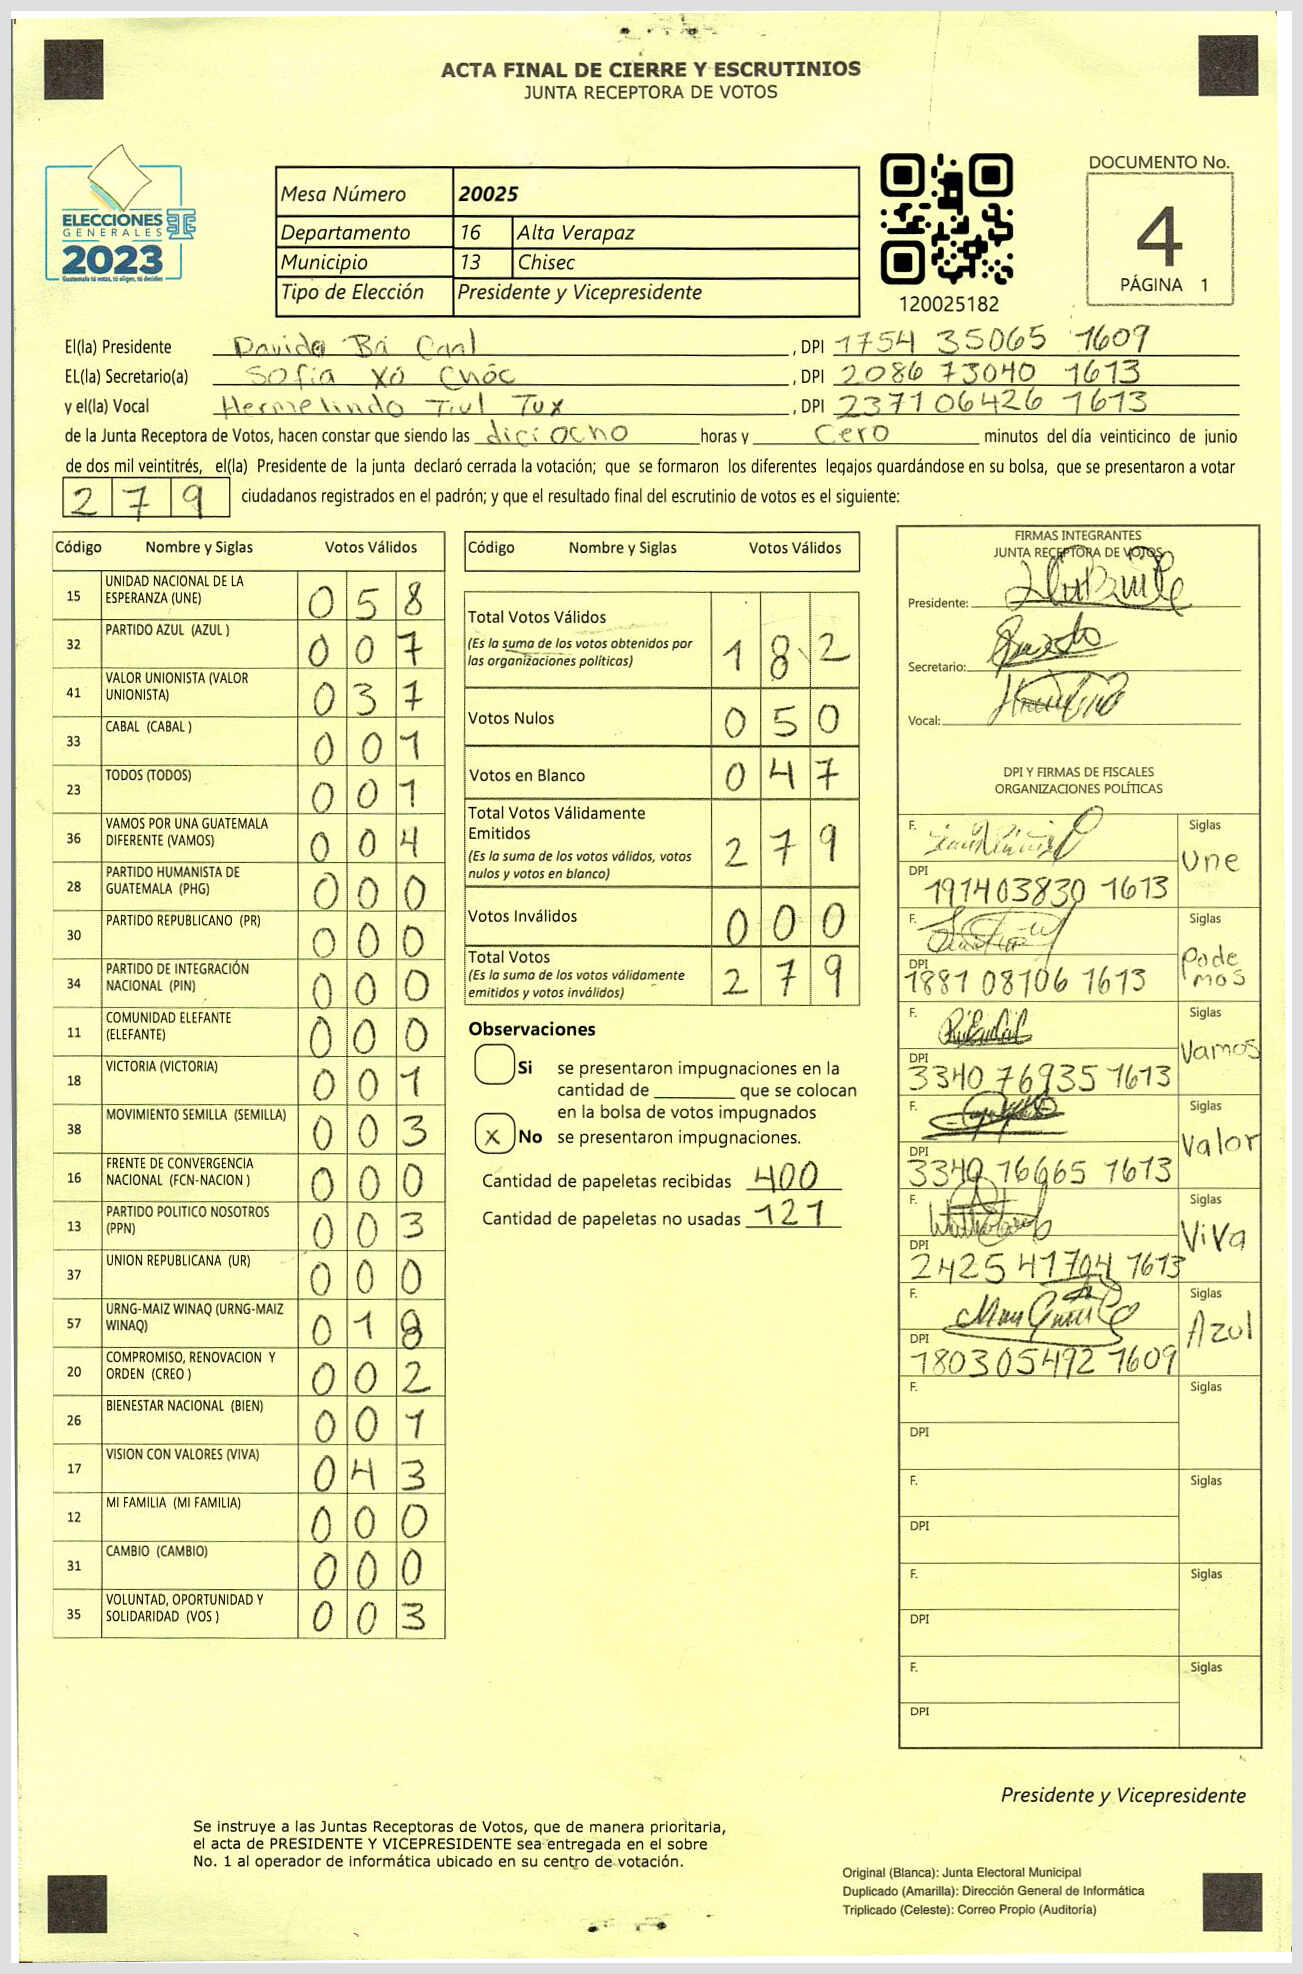 ACTA FINAL DE CIERRE Y ESCRUTINIOS
JUNTA RECEPTORA DE VOTOS
ELECCIONES
GENERALES
2023
Guatemala tú votas, tú eliges, tú decides
Mesa Número 20025
Departamento 16 Alta Verapaz
Municipio 13 Chisec
Tipo de Elección Presidente y Vicepresidente
120025182
DOCUMENTO No.
4
PÁGINA 1
El(la) Presidente Davido Bá Caal , DPI 1754 35065 1609
EL(la) Secretario(a) Sofía Xó Chóc , DPI 2086 73040 1613
y el(la) Vocal Hermelindo Tiul Tux , DPI 2371 06426 1613
de la Junta Receptora de Votos, hacen constar que siendo las diciocho horas y cero minutos del día veinticinco de junio
de dos mil veintitrés, el(la) Presidente de la junta declaró cerrada la votación; que se formaron los diferentes legajos guardándose en su bolsa, que se presentaron a votar
279 ciudadanos registrados en el padrón; y que el resultado final del escrutinio de votos es el siguiente:
Código Nombre y Siglas Votos Válidos
15 UNIDAD NACIONAL DE LA ESPERANZA (UNE) 058
32 PARTIDO AZUL (AZUL ) 007
41 VALOR UNIONISTA (VALOR UNIONISTA) 037
33 CABAL (CABAL ) 001
23 TODOS (TODOS) 001
36 VAMOS POR UNA GUATEMALA DIFERENTE (VAMOS) 004
28 PARTIDO HUMANISTA DE GUATEMALA (PHG) 000
30 PARTIDO REPUBLICANO (PR) 000
34 PARTIDO DE INTEGRACIÓN NACIONAL (PIN) 000
11 COMUNIDAD ELEFANTE (ELEFANTE) 000
18 VICTORIA (VICTORIA) 001
38 MOVIMIENTO SEMILLA (SEMILLA) 003
16 FRENTE DE CONVERGENCIA NACIONAL (FCN-NACION ) 000
13 PARTIDO POLITICO NOSOTROS (PPN) 003
37 UNION REPUBLICANA (UR) 000
57 URNG-MAIZ WINAQ (URNG-MAIZ WINAQ) 018
20 COMPROMISO, RENOVACION Y ORDEN (CREO ) 002
26 BIENESTAR NACIONAL (BIEN) 001
17 VISION CON VALORES (VIVA) 043
12 MI FAMILIA (MI FAMILIA) 000
31 CAMBIO (CAMBIO) 000
35 VOLUNTAD, OPORTUNIDAD Y SOLIDARIDAD (VOS ) 003
Código Nombre y Siglas Votos Válidos
Total Votos Válidos 182
(Es la suma de los votos obtenidos por
las organizaciones políticas)
Votos Nulos 050
Votos en Blanco 047
Total Votos Válidamente
Emitidos 279
(Es la suma de los votos válidos, votos
nulos y votos en blanco)
Votos Inválidos 000
Total Votos 279
(Es la suma de los votos válidamente
emitidos y votos inválidos)
Observaciones
Si se presentaron impugnaciones en la
cantidad de ________ que se colocan
en la bolsa de votos impugnados
x No se presentaron impugnaciones.
Cantidad de papeletas recibidas 400
Cantidad de papeletas no usadas 121
FIRMAS INTEGRANTES
JUNTA RECEPTORA DE VOTOS
Presidente:
Secretario:
Vocal:
DPI Y FIRMAS DE FISCALES
ORGANIZACIONES POLÍTICAS
F. Siglas Une
DPI 191403830 1613
F. Siglas Podemos
DPI 1881 08106 1613
F. Siglas Vamos
DPI 3340 76935 1613
F. Siglas Valor
DPI 3340 76665 1613
F. Siglas ViVa
DPI 2425 41704 1613
F. Siglas Azul
DPI 180305492 1609
F. Siglas
DPI
F. Siglas
DPI
F. Siglas
DPI
F. Siglas
DPI
Presidente y Vicepresidente
Se instruye a las Juntas Receptoras de Votos, que de manera prioritaria,
el acta de PRESIDENTE Y VICEPRESIDENTE sea entregada en el sobre
No. 1 al operador de informática ubicado en su centro de votación.
Original (Blanca): Junta Electoral Municipal
Duplicado (Amarilla): Dirección General de Informática
Triplicado (Celeste): Correo Propio (Auditoría)